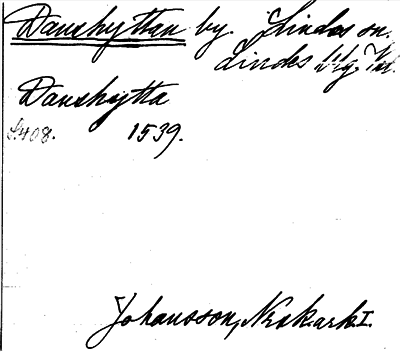 Danshyttan by. Lindes sn.
Lindes bg. Vstm.
Danshytta
S. 408. 1539.
Johansson, Norskark I.